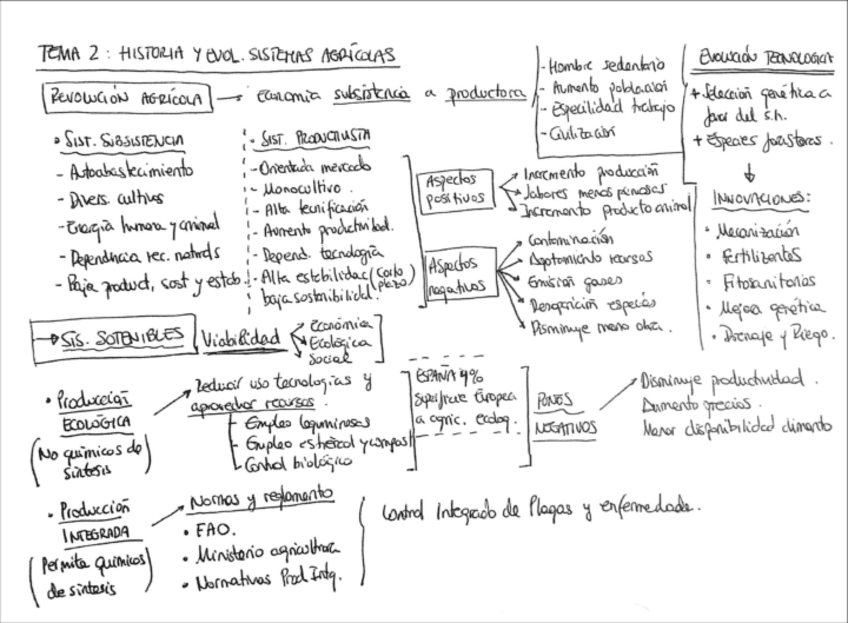 TEMA 2: HISTORIA Y EVOL. SISTEMAS AGRÍCOLAS
REVOLUCIÓN AGRÍCOLA → Economía subsistencia a productora
- Hombre sedentario
- Aumento población
- Especilidad trabajo
- Civilización
EVOLUCIÓN TECNOLOGICA
+ Selección genética a
favor del s.h.
+ Especies forasteras.
INNOVACIONES:
• Mecanización
• Fertilizantes
• Fitosanitarios
• Mejora genética
• Drenaje y Riego.
• SIST. SUBSISTENCIA
- Autoabastecimiento
- Divers. cultivos
- Energía humana y animal
- Dependencia rec. naturals
- Baja product, sost y estab.
- SIST. PRODUCTIVISTA
- Orientada mercado
- Monocultivo.
- Alta tecnificación
- Aumento productividad.
- Depend. tecnología
- Alta estabilidad (corto plazo)
baja sostenibilidad.
Aspectos
positivos
Incremento producción
labores menos penosas
Incremento producto animal
Aspectos
negativos
Contaminación
Agotamiento recursos
Emisión gases
Desaparición especies
Disminuye mano obra.
→ SIS. SOTENIBLES
Viabilidad
Económica
Ecológica
Social
• Producción
ECOLÓGICA
(No químicos de
síntesis)
Reducir uso tecnologías y
aprovechar recursos.
- Empleo leguminosas
- Empleo estiércol y compost
- Control biológico
ESPAÑA 4%
superficie Europea
a agric. ecolog.
NEGATIVOS
Disminuye productividad.
Aumento precios.
Menor disponibilidad alimento
• Producción
INTEGRADA
(Permite químicos
de síntesis)
Normas y reglamento
• FAO.
• Ministerio agricultura
• Normativas Prod Intg.
Control Integrado de Plagas y enfermedade.